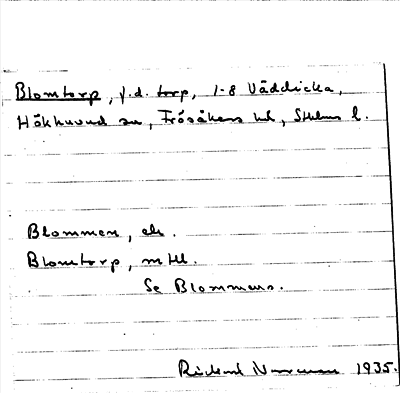 Blomtorp, f.d. torp, 1-8 Väddicka,
Hökhuvud sn, Frösåkers hd, Sthlms l.
Blommen, ek.
Blomtorp, mtl.
Se Blommens.
Rickard 1935.